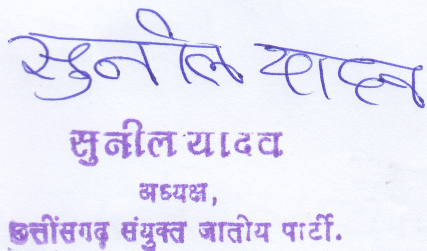 सुनील यादव
सुनील यादव
अध्यक्ष,
छत्तीसगढ़ संयुक्त जातीय पार्टी.